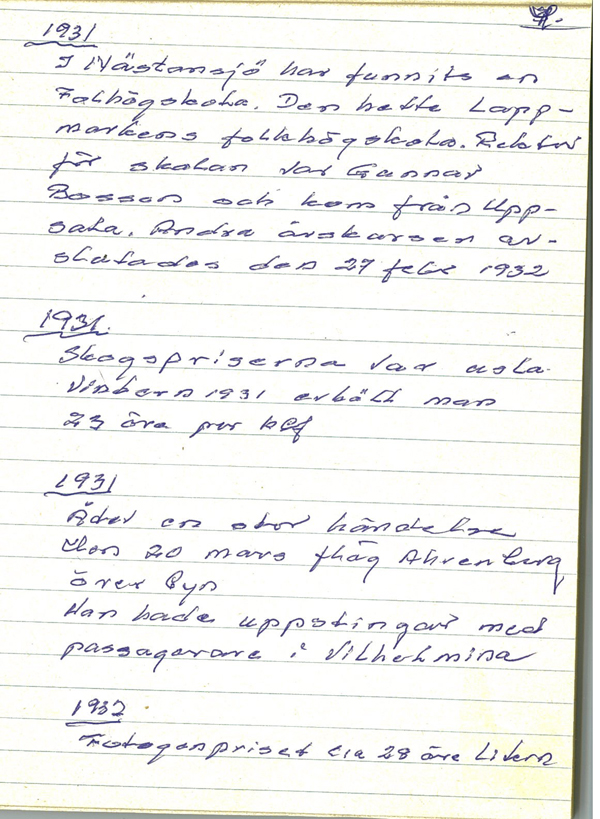 1931
I Nästansjö har funnits en
Folkhögskola. Den hette Lapp-
markens folkhögskola. Rektor
för skolan var Gunnar
Bosson och kom från Upp-
sala. Andra årskursen av-
slutades den 27 febr 1932
1931.
Skogspriserna var usla.
Vintern 1931 erhöll man
23 öre per kbf
1931
Året en stor händelse
den 20 mars flög Ahrenberg
över byn
Han hade uppstingar med
passagerare i Vilhelmina
1932
Fotogenpriset c:a 28 öre Litern